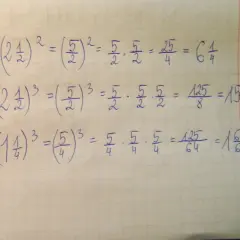 (2 1/2)² = (5/2)² = 5/2 · 5/2 = 25/4 = 6 1/4
2 1/2)³ = (5/2)³ = 5/2 · 5/2 · 5/2 = 125/8 = 15
1 1/4)³ = (5/4)³ = 5/4 · 5/4 · 5/4 = 125/64 = 1